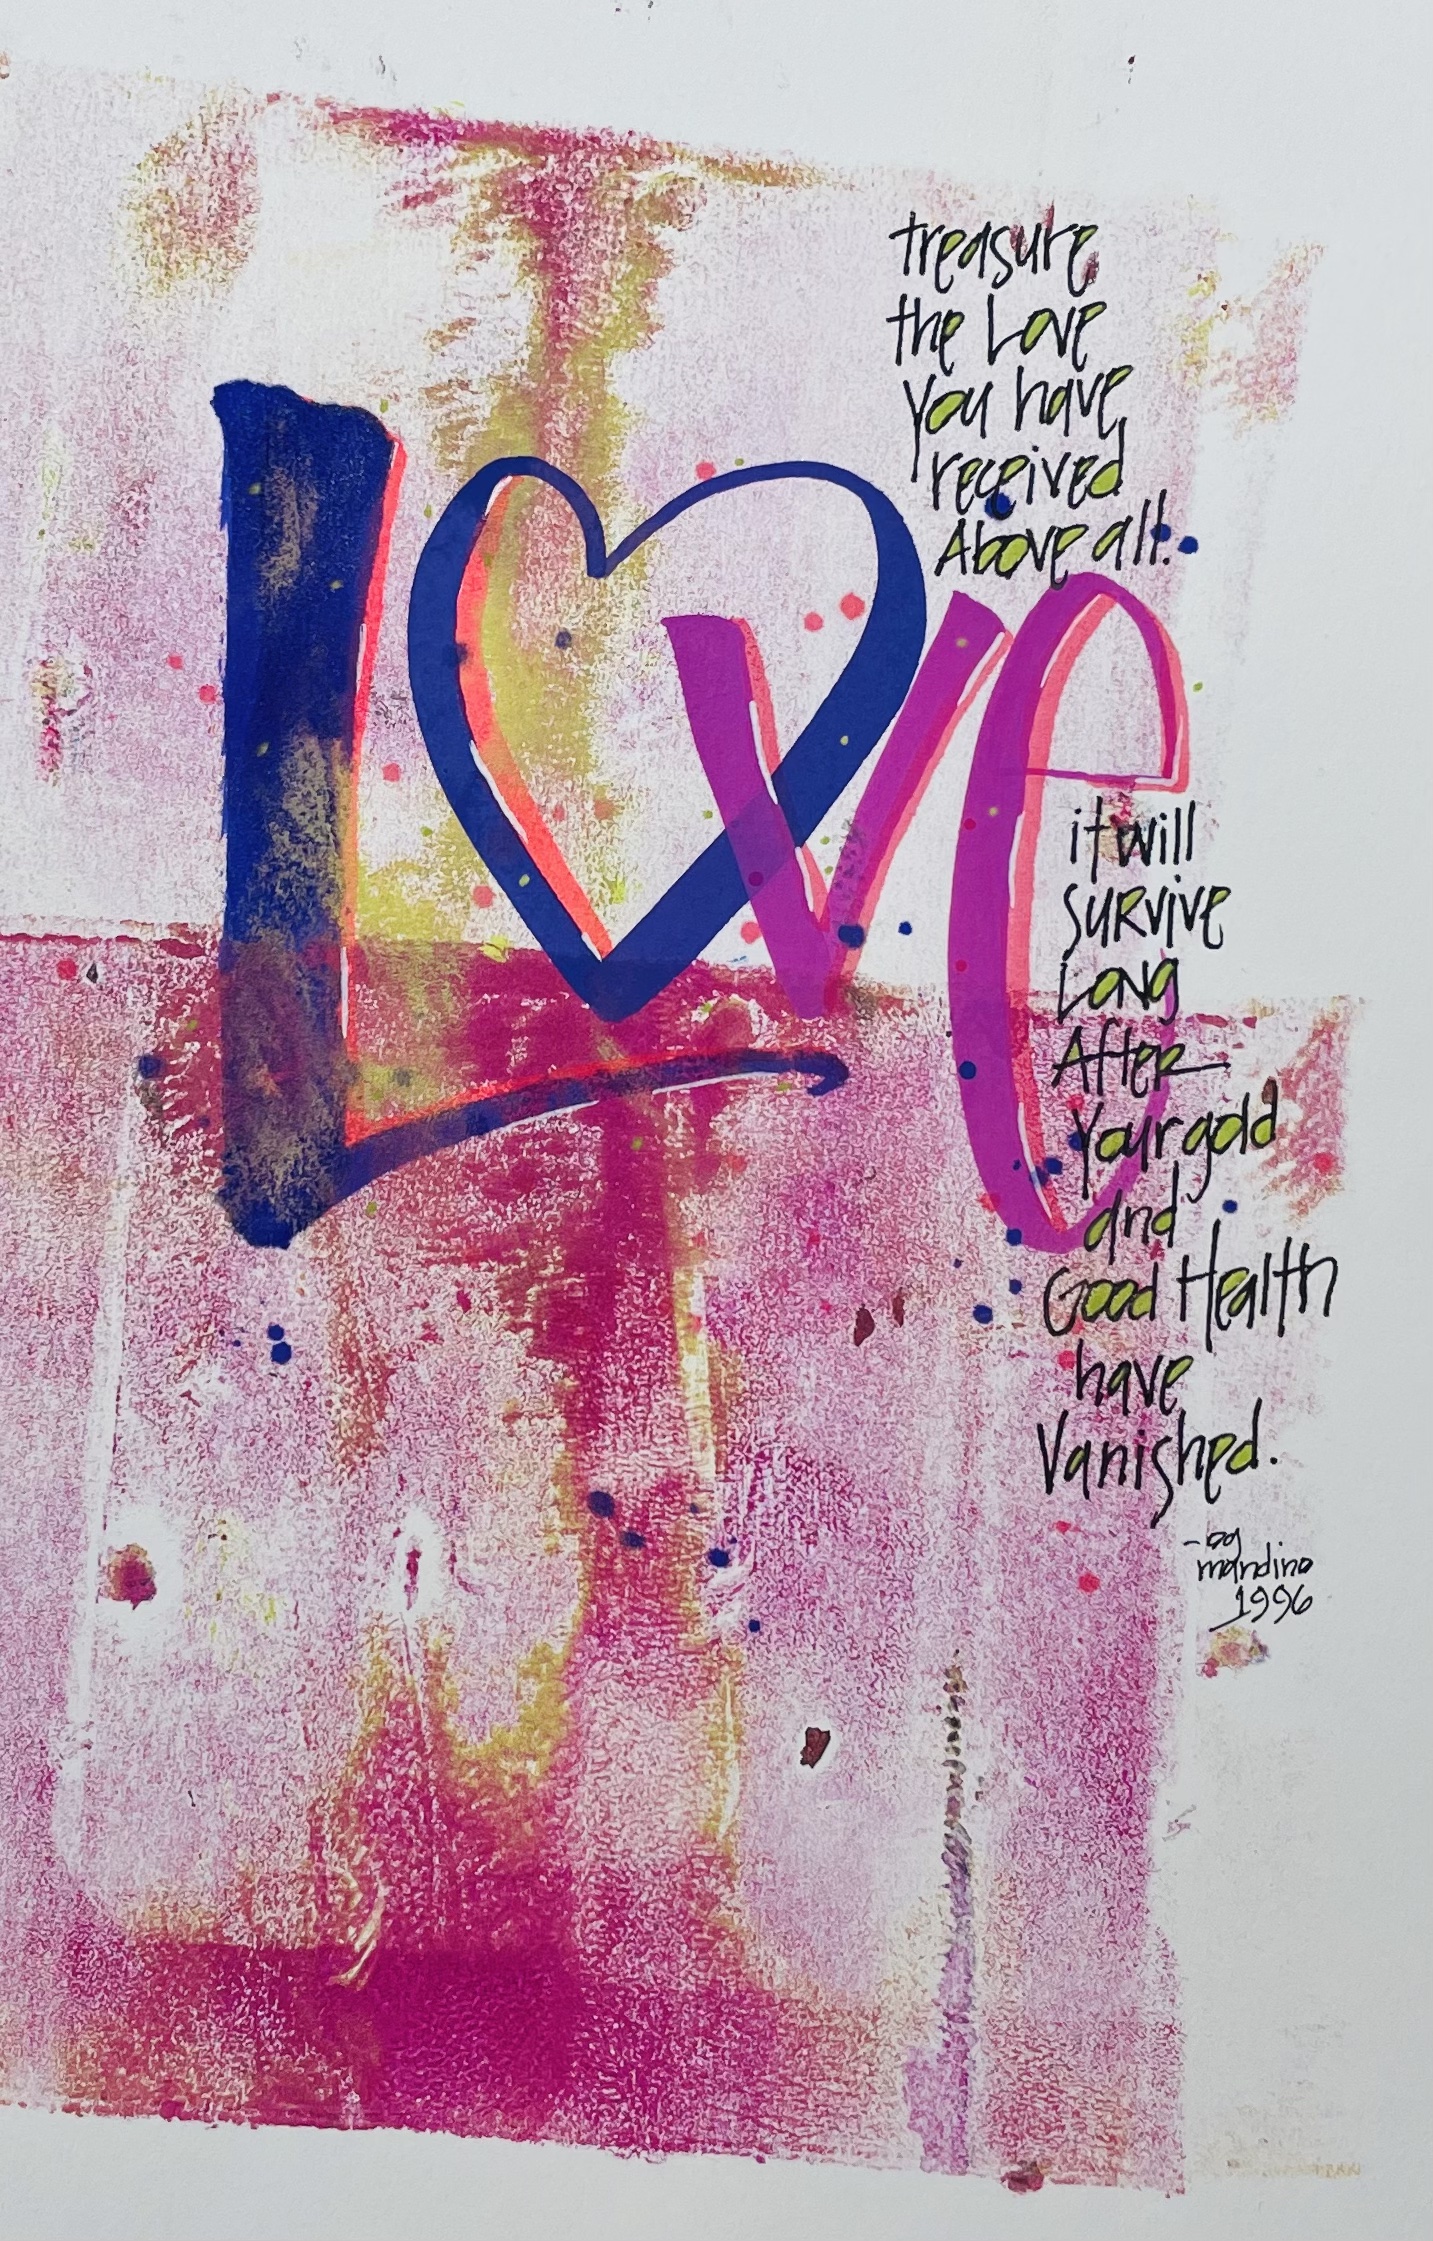 treasure
the Love
you have
received
Above all.
Love
it will
survive
Long
After
Your gold
and
Good Health
have
Vanished.
- og
mandino
1996